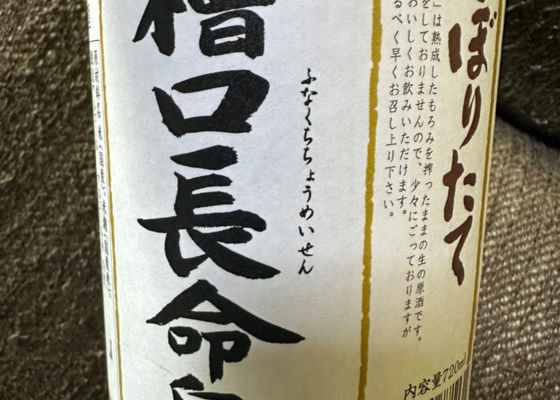 ぼりたて
は熟成したもろみを搾ったままの生の原酒です。
をしておりませんので、少々にごっておりますが
おいしくお飲みいただけます。
るべく早くお召し上り下さい。
内容量720ml
ふなくちちょうめいせん
槽口長命
原材料名 米(国産)、米麹(国産米)